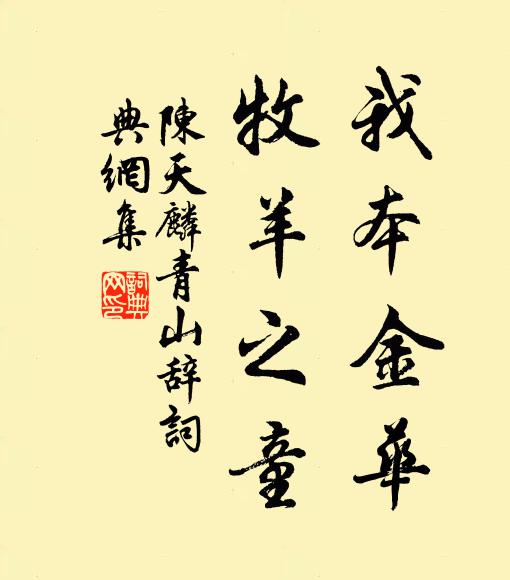 我本金華
牧羊之童
陳天麟青山辞詞
典網集
詞典
网印